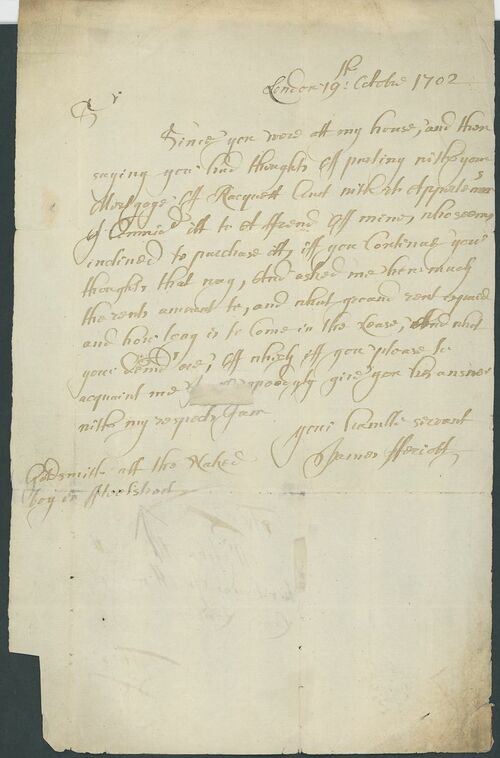 London 19th: Octobre 1702
Sr
Since you were att my house, and then
saying you had thoughts off parting with your
Mortgage off Racquett Court with its Appertenances
I Commd itt to A ffrend off mine, who seems
inclined to purchase itt, iff you Continue your
thoughts that way, And asked me how much
the rents amount to, and what ground rent is paid
and how long is to come in the Lease, And what
your demds are, Off which iff you please to
acquaint me give you his answer
with my respects I am
your humble servant
James Heriott
Goldsmith att the Naked
boy in ffleetstreet